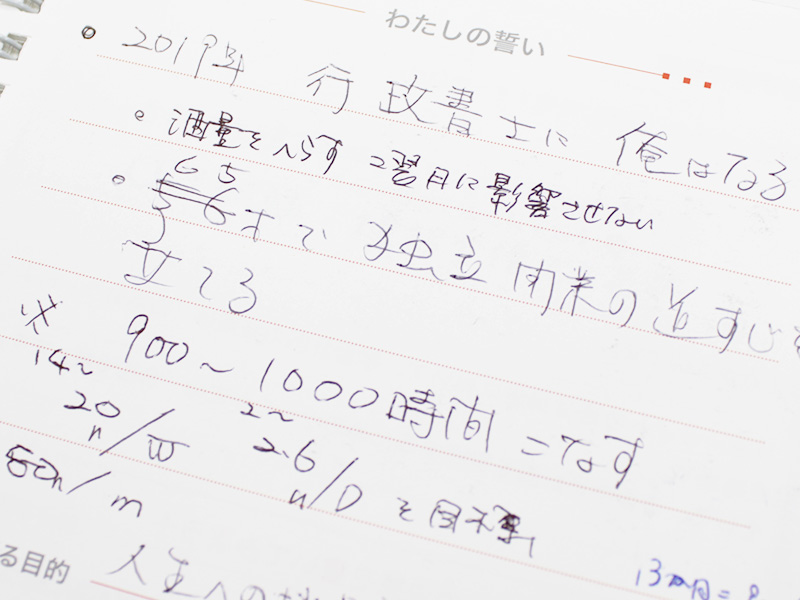 わたしの誓い
2019年 行政書士に 俺はなる
酒量をへらす 翌月に影響させない
65
56才で 独立開業の道すじを
立てる
※ 900〜1000時間 こなす
14〜20h/w 2〜2.6h/D を目標
50h/m
る目的
人生への
13ヵ月=